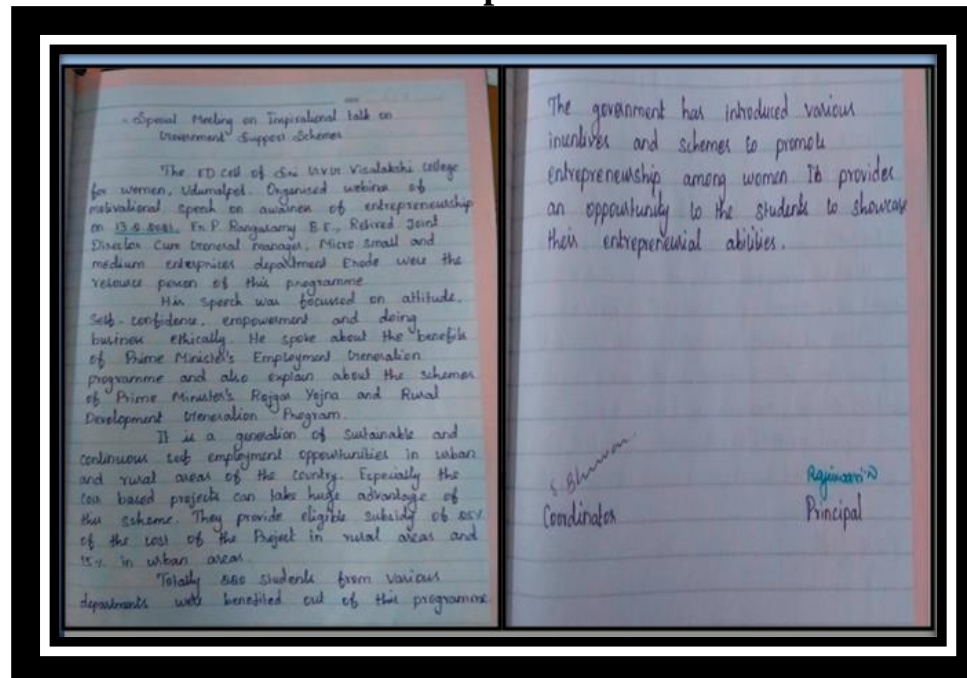 Special Meeting on Inspirational talk on
Government Support Schemes
The ED cell of Sri G.V.G Visalakshi college
for women, Udumalpet. Organised webinar of
motivational speech on awarness of entrepreneurship
on Er. P. Rangasamy B.E., Retired Joint
Director Cum General manager, Micro small and
medium enterprices department Erode were the
resource person of this programme
His speech was focussed on attitude,
Self-confidence, empowerment and doing
business ethically. He spoke about the benefits
of Prime Minister's Employment Generation
programme and also explain about the schemes
of Prime Minister's Rojgar Yojna and Rural
Development Generation Program.
It is a generation of Sustainable and
continuous self employment oppourtunities in urban
and rural areas of the country. Especially the
based projects can take huge advantage of
this scheme. They provide eligible subsidy of 25%
of the cost of the Project in rural areas and
15% in urban areas.
Totally students from various
departments were benefited out of this programme
The government has introduced various
incentives and schemes to promote
entrepreneurship among women It provides
an oppourtunity to the students to showcase
their entrepreneurial abilities.
Coordinator
Principal